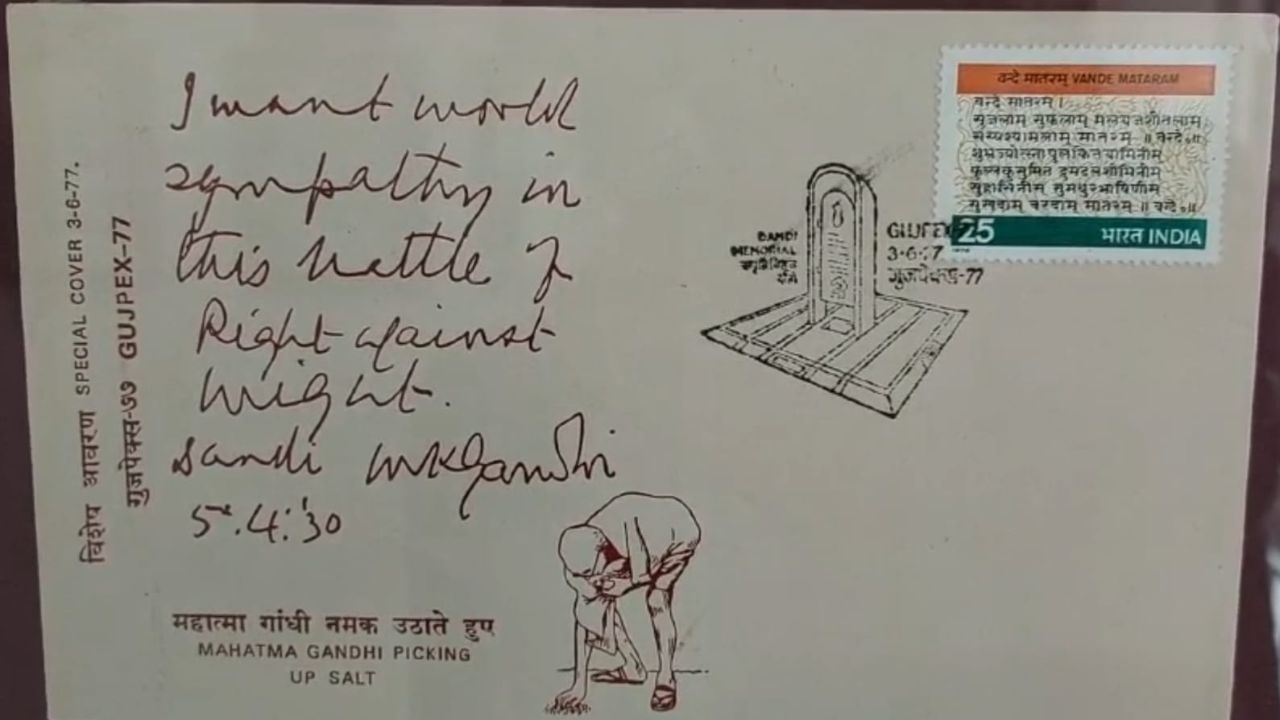 विशेष आवरण SPECIAL COVER 3-6-77.
गुजपेक्स-७७ GUJPEX-77
I want world
sympathy in
this battle of
Right against
might.
Dandi MKGandhi
5.4.'30
महात्मा गांधी नमक उठाते हुए
MAHATMA GANDHI PICKING
UP SALT
DANDI
MEMORIAL
GUJPEX
3-6-77
गुजपेक्स-77
वन्दे मातरम् VANDE MATARAM
वन्दे मातरम् ।
सुजलाम् सुफलाम् मलयजशीतलाम्
सस्यश्यामलाम् मातरम् ॥ वन्दे०॥
शुभ्रज्योत्स्ना पुलकित यामिनीम्
फुल्लकुसुमित द्रुमदलशोभिनीम्
सुहासिनीम् सुमधुरभाषिणीम्
सुखदाम् वरदाम् मातरम् ॥ वन्दे०॥
25 भारत INDIA